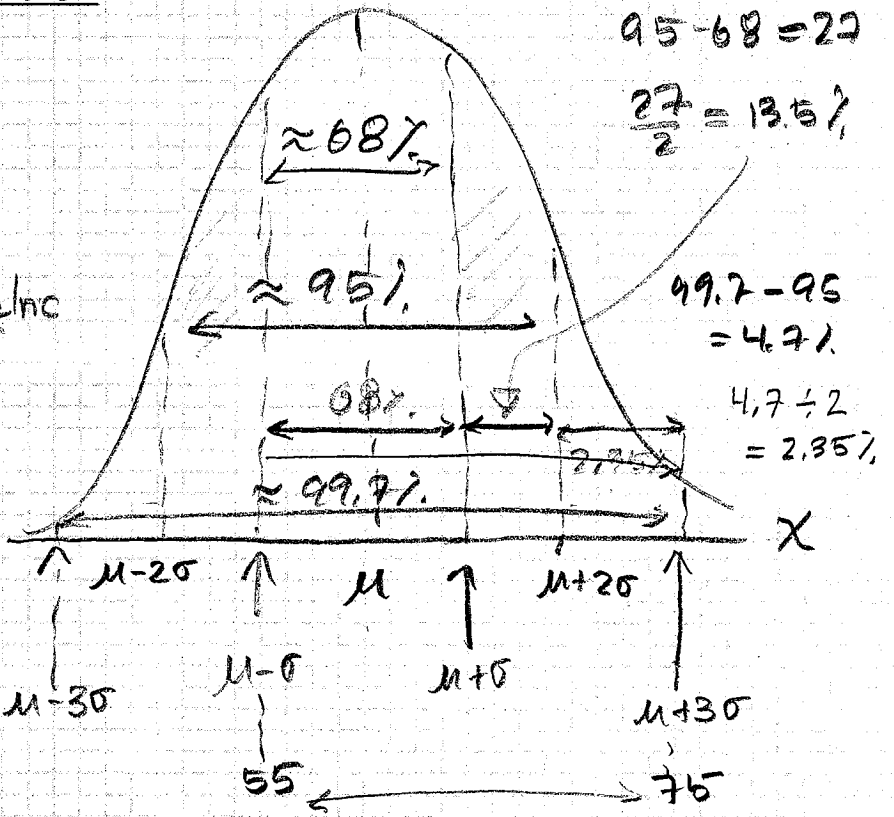 95-68=27
27/2 = 13.5%
≈68%
≈ 95%
99.7-95
= 4.7%
68%
4.7÷2
= 2.35%
2.35%
≈ 99.7%
x
μ-2σ
μ
μ+2σ
μ-3σ
μ-σ
μ+σ
μ+3σ
55
75